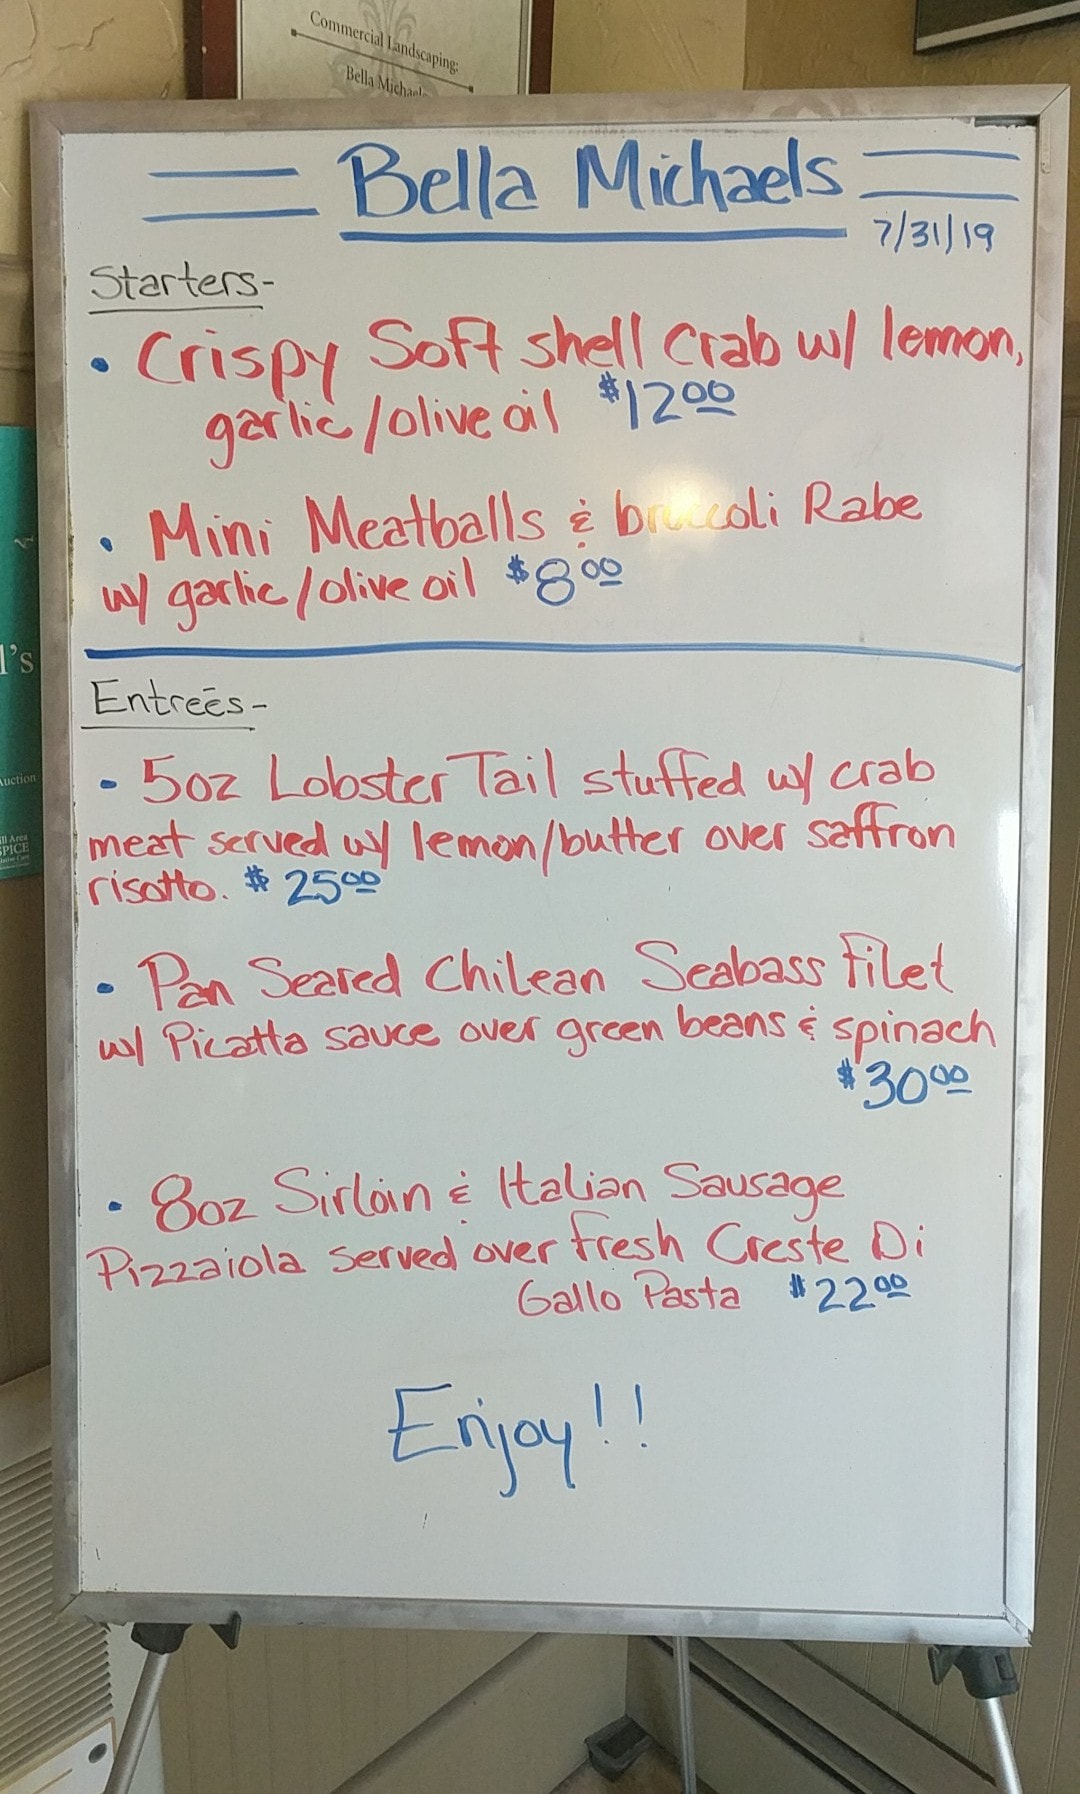 Commercial Landscaping:
Bella Michael
Bella Michaels
7/31/19
Starters-
• Crispy Soft shell Crab w/ lemon,
garlic/olive oil $12.00
• Mini Meatballs & broccoli Rabe
w/ garlic/olive oil $8.00
Entreés-
• 5oz Lobster Tail stuffed w/ crab
meat served w/ lemon/butter over saffron
risotto. $25.00
• Pan Seared Chilean Seabass Filet
w/ Picatta sauce over green beans & spinach
$30.00
• 8oz Sirloin & Italian Sausage
Pizzaiola served over fresh Creste Di
Gallo Pasta $22.00
Enjoy!!
l's
Auction
Area
SPICE